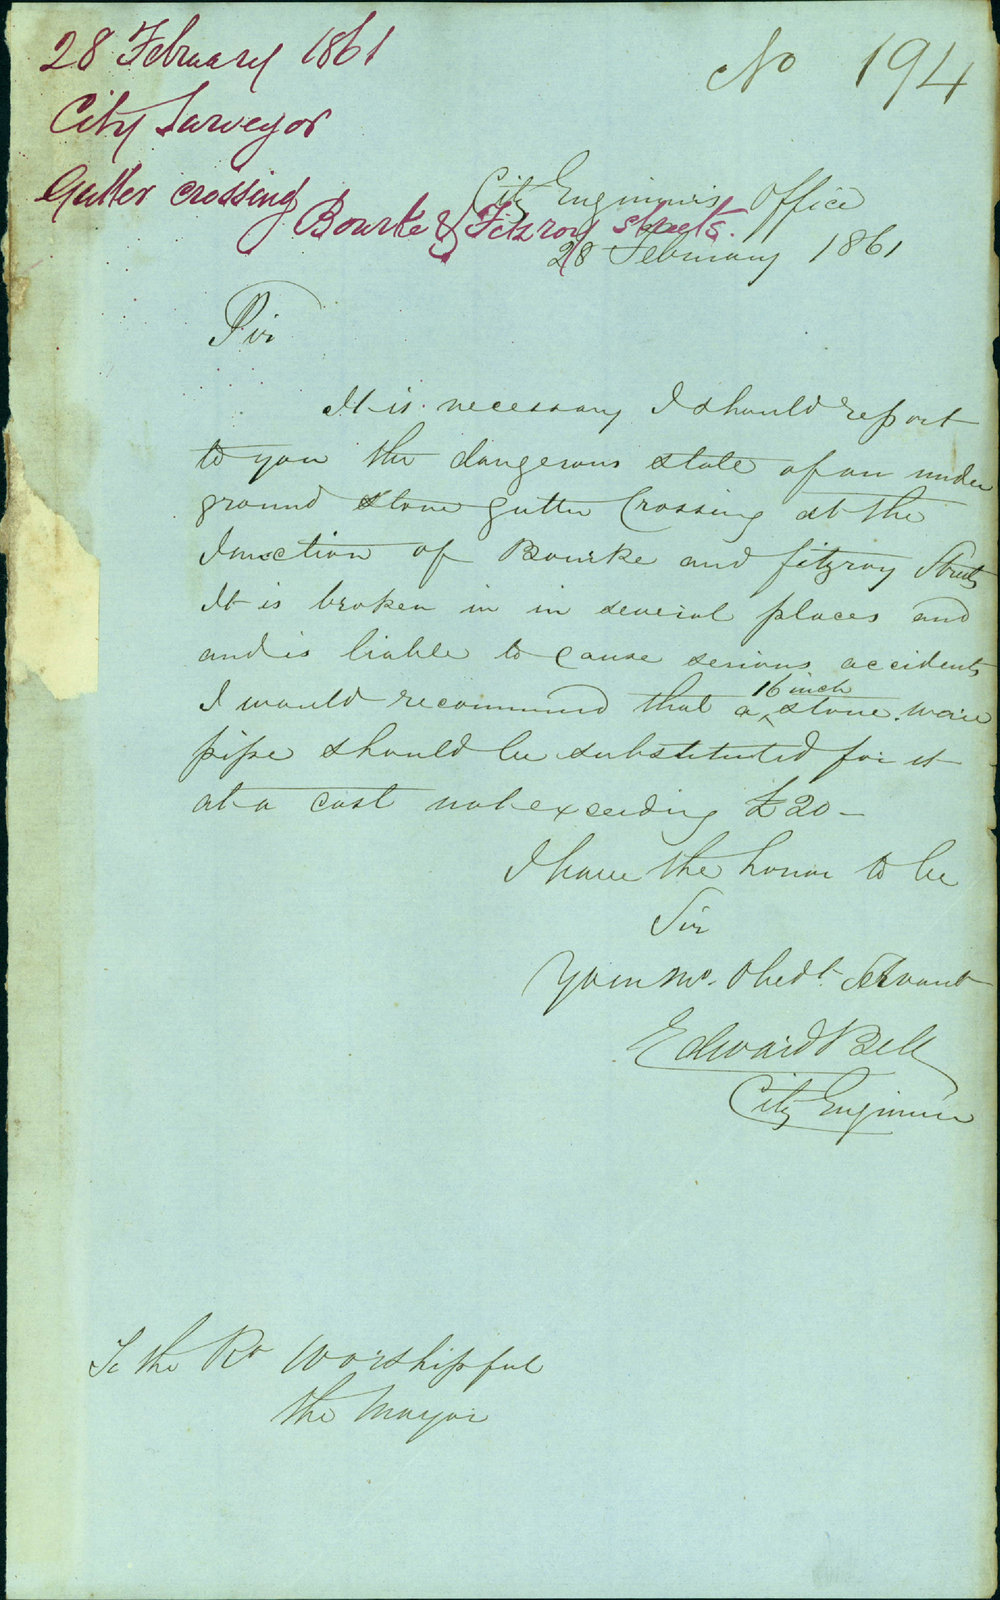 28 February 1861
City Surveyor
Gutter crossing
Bourke & Fitzroy streets.
No 194
City Engineers Office
28 February 1861
Sir
It is necessary I should report
to you the dangerous state of an under
ground stone gutter Crossing at the
Junction of Bourke and fitzroy Streets
It is broken in in several places and
and is liable to cause serious accidents
I would recommend that a 16 inch stone ware
pipe should be substituted for it
at a cost not exceeding £20 –
I have the honor to be
Sir
Your Mo. Obedt. Servant
Edward Bell
City Engineer
To the Rt Worshipful
the Mayor